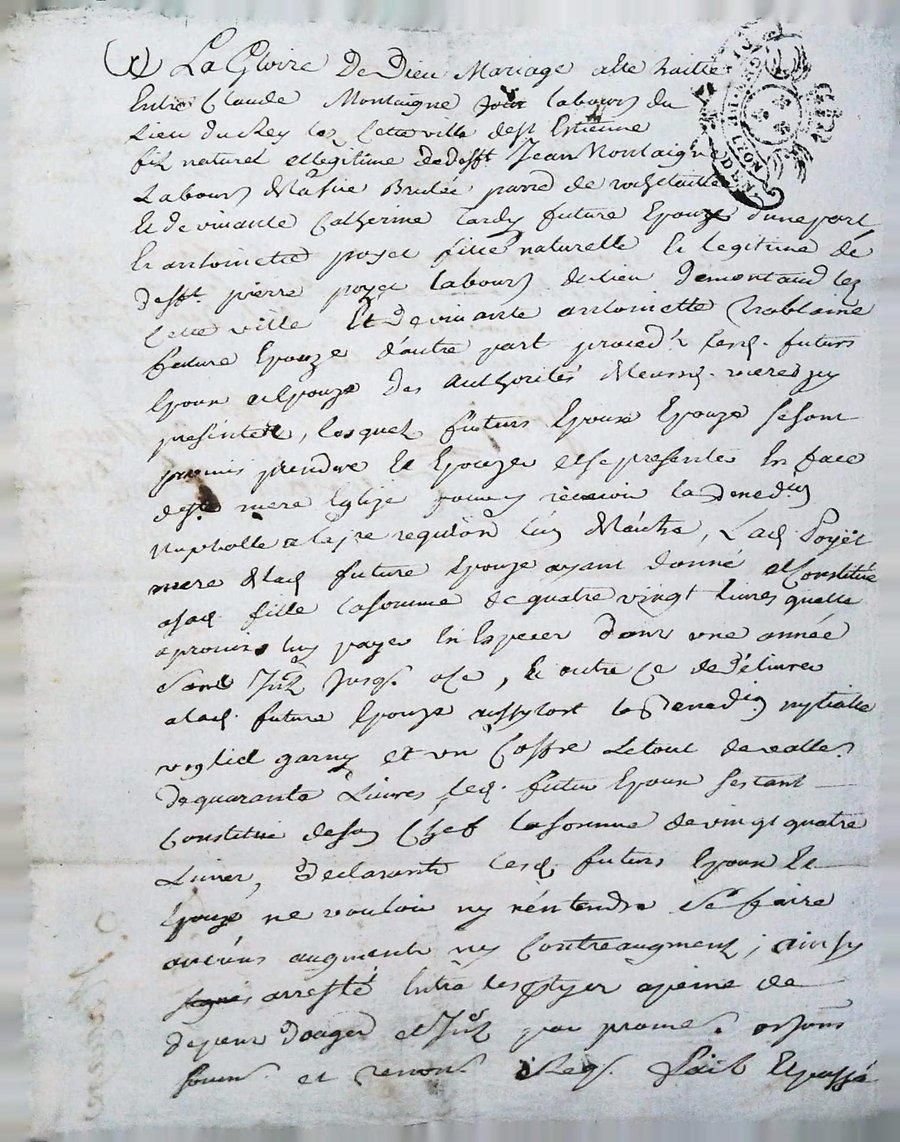 A La Gloire De Dieu Mariage a esté traitté
Entre Claude Montaigne labour du
Lieu du Rey lez Cette ville de st Estienne
fils naturel et legitime de defft Jean Montaigne
Labour Brulée parr de rochetaillee
Et de vivante Catherine Tardy futur Epoux d'une part
Et antoinette poyet fille naturelle Et legitime de
defft pierre poyet labour du lieu de montaud lez
Cette ville Et De vivante antoinette
future Epouze d'autre part proced't lesd. futurs
Epoux et Epouze des Authorités de leursd. meres cy
presentes, lesquels futurs Epoux Epouze se sont
promis prendre Et Epouzer et se presenter En face
de ste mere Eglise pour y recevoir la Benedon
nuptialle a la pre requion de l'autre, Lad. Poyet
mere de lad. future Epouze ayant donné et Constitué
a sad. fille la somme de quatre vingt livres quelle
a promis luy payer En Especes dans une année
sans Jusq. a ce, Et outre ce de délivrer
a lad. future Epouze aussytost la Benedon nuptialle
un lict garny et un Coffre Le tout de valleur
de quarante Livres led. futur Epoux s'estant
Constitué de son Chef la somme de vingt quatre
Livres, Declarants lesd. futurs Epoux Et
Epouze ne vouloir ny n'entendre se faire
aucuns augment ny Contreaugment; ainsy
arresté Entre les ptyes a peine de
depens domages et par promes. oblions
soum. et renon. Req. Fait Et passé
LYON